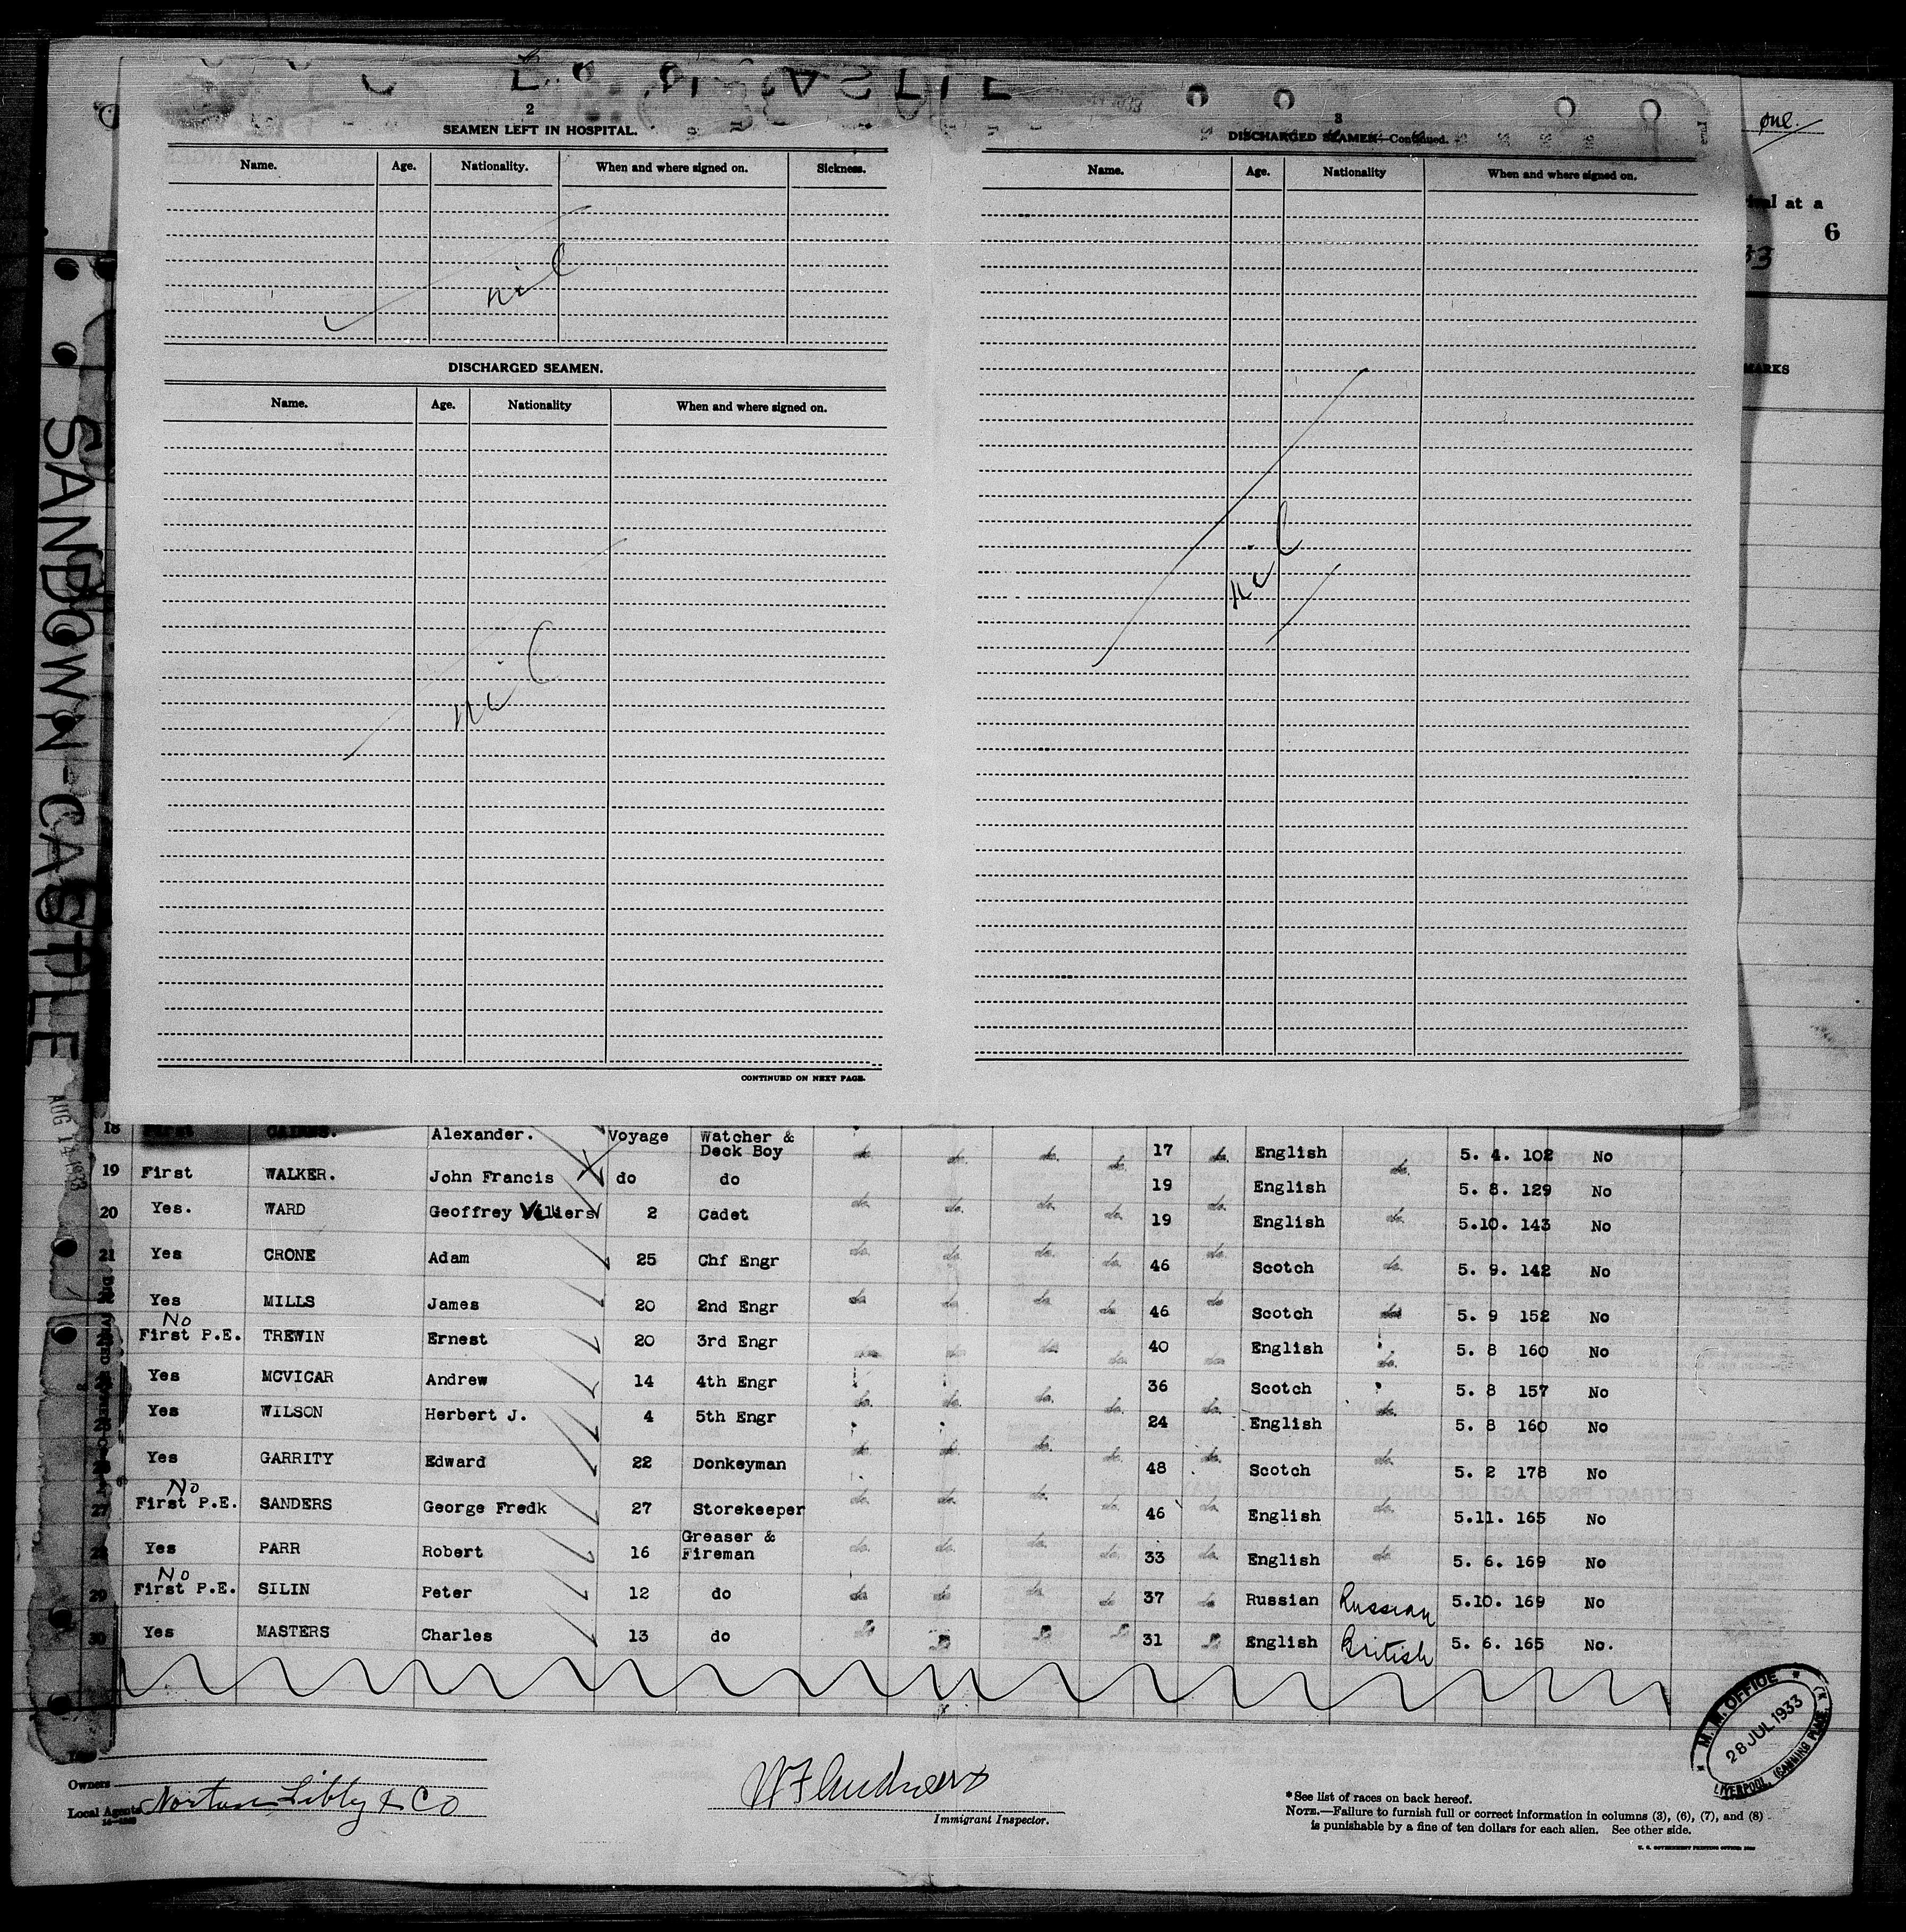 2
SEAMEN LEFT IN HOSPITAL.
Name. Age. Nationality. When and where signed on. Sickness.
nil
DISCHARGED SEAMEN.
Name. Age. Nationality When and where signed on.
nil
CONTINUED ON NEXT PAGE.
3
DISCHARGED SEAMEN—Continued.
Name. Age. Nationality When and where signed on.
nil
one.
at a
6
33
MARKS
SANDOWN-CASTLE
AUG 14 1933
18 First CAIRNS. Alexander. Voyage Watcher & Deck Boy do. do. do. do. 17 do. English do. 5. 4. 102 No
19 First WALKER. John Francis do do 19 English 5. 8. 129 No
20 Yes. WARD Geoffrey Villiers 2 Cadet do. do. do. do. 19 do. English do. 5.10. 143 No
21 Yes CRONE Adam 25 Chf Engr do. do. do. do. 46 do. Scotch do. 5. 9. 142 No
Yes MILLS James 20 2nd Engr do. do. do. do. 46 do. Scotch do. 5. 9 152 No
No
First P.E. TREWIN Ernest 20 3rd Engr do. do. do. do. 40 do. English do. 5. 8 160 No
Yes MCVICAR Andrew 14 4th Engr 36 Scotch 5. 8 157 No
Yes WILSON Herbert J. 4 5th Engr do. do. do. do. 24 do. English do. 5. 8 160 No
Yes GARRITY Edward 22 Donkeyman do. do. do. do. 48 do. Scotch do. 5. 2 178 No
No
27 First P.E. SANDERS George Fredk 27 Storekeeper do. do. do. do. 46 do. English do. 5.11. 165 No
28 Yes PARR Robert 16 Greaser & Fireman do. do. do. do. 33 do. English do. 5. 6. 169 No
No
29 First P.E. SILIN Peter 12 do do. do. do. do. 37 do. Russian Russian 5.10. 169 No
30 Yes MASTERS Charles 13 do do do do do 31 do English British 5. 6. 165 No.
M. M. OFFICE
28 JUL 1933
LIVERPOOL, (CANNING PLACE.)
Owners
Local Agents Norton Libby & Co
W F Andrews
Immigrant Inspector.
*See list of races on back hereof.
NOTE.—Failure to furnish full or correct information in columns (3), (6), (7), and (8)
is punishable by a fine of ten dollars for each alien. See other side.
U. S. GOVERNMENT PRINTING OFFICE